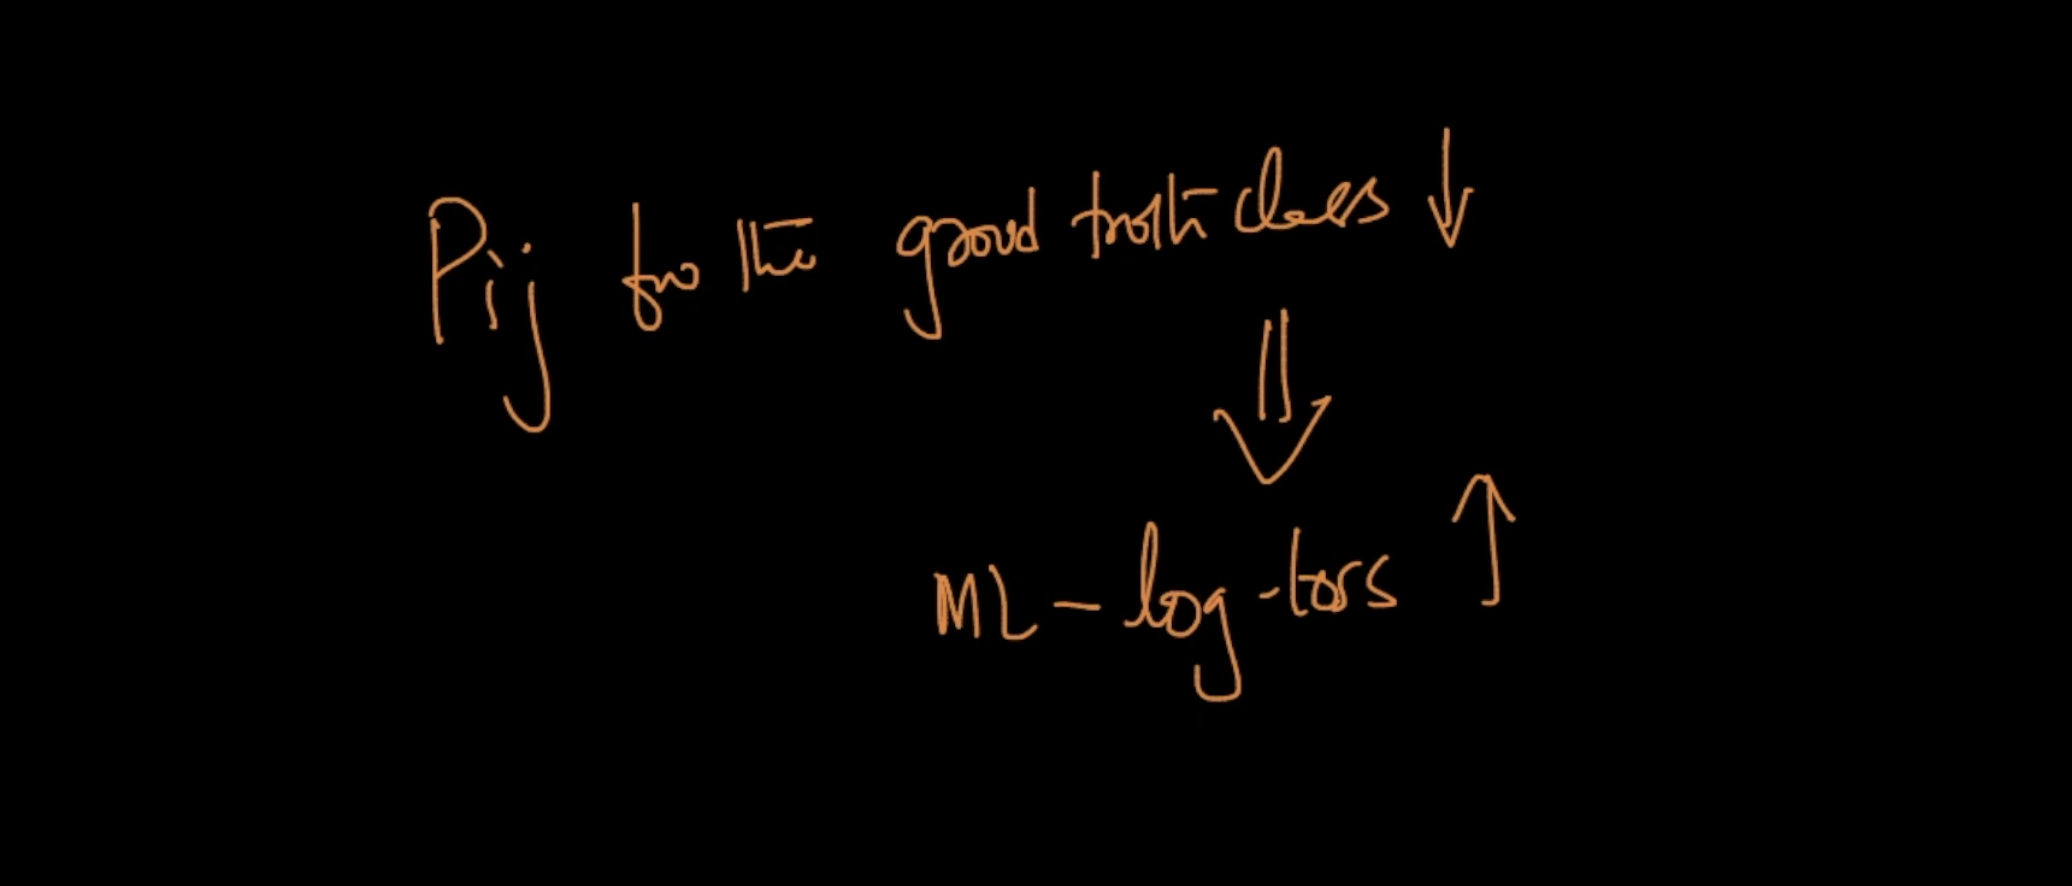 Pij for the ground truth class ↓
⇓
ML-log-loss ↑